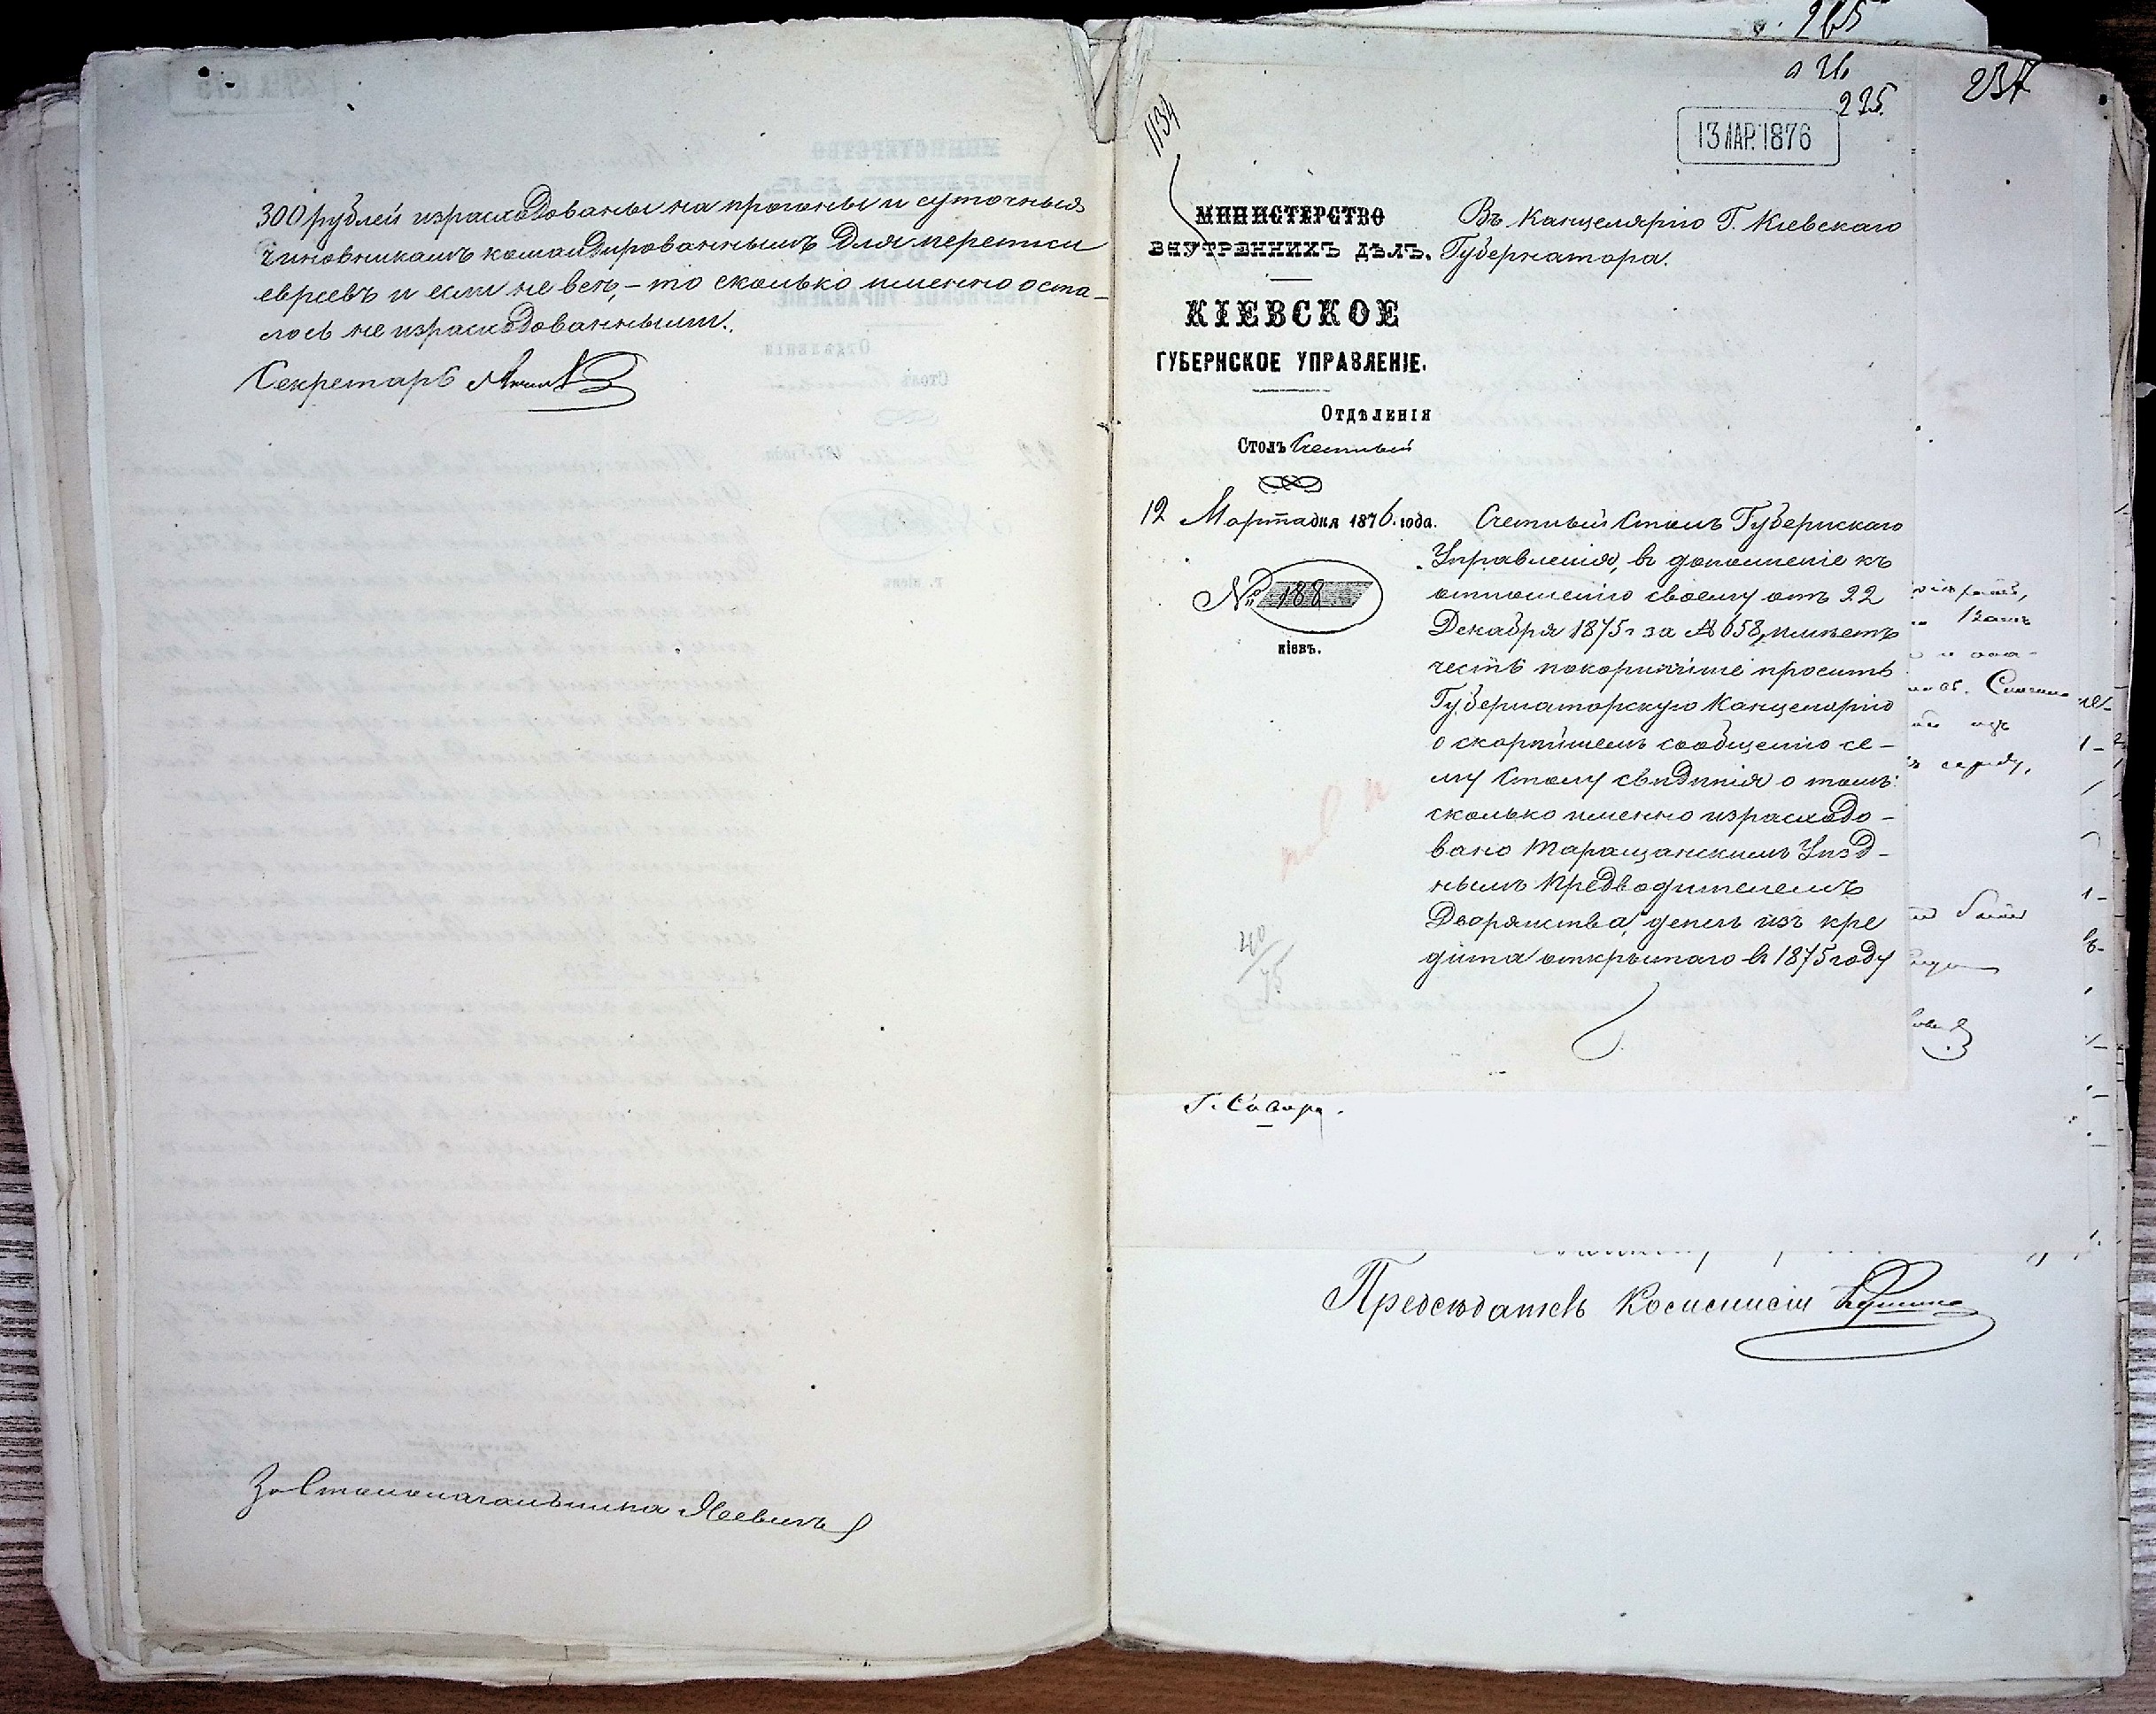 300 рублей израсходованы на прогоны и суточныя
чиновникамъ командированнымъ для переписи
евреевъ и если не всѣ, – то сколько именно оста-
лось не израсходованными.
Секретарь
За Столоначальника
265
226
225.
237
1134
13 МАР. 1876
МИНИСТЕРСТВО
ВНУТРЕННИХЪ ДѢЛЪ.
КІЕВСКОЕ
ГУБЕРНСКОЕ УПРАВЛЕНІЕ.
ОТДѢЛЕНІЯ
Столъ Счетный
12 Марта дня 1876 года.
№ 188
КІЕВЪ.
Въ Канцелярію Г. Кіевскаго
Губернатора.
Счетный Столъ Губернскаго
Управленія, въ дополненіе къ
отношенію своему отъ 22
Декабря 1875 г за № 658, имѣетъ
честь покорнѣйше просить
Губернаторскую Канцелярію
о скорѣйшемъ сообщеніи се-
му Столу свѣдѣнія о томъ:
сколько именно израсходо-
вано Таращанскимъ Уѣзд-
нымъ Предводителемъ
Дворянства, денегъ изъ кре
дита открытаго въ 1875 году
40/75
Г.
Предсѣдатель Коммисіи